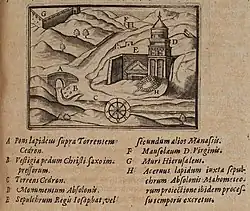 A Pons lapideus supra Torrentem
Cedron.
B Vestigia pedum Christi saxo im-
pressorum.
C Torrens Cedron.
D Monumentum Absolonis.
E Sepulchrum Regis Iosaphat, vel
secundum alios Manassis.
F Mausolaeum D. Virginis.
G Muri Hierusalem.
H Acervus lapidum iuxta sepul-
chrum Absolonis Mahometeo-
rum proiectione ibidem proces-
su temporis excretus.